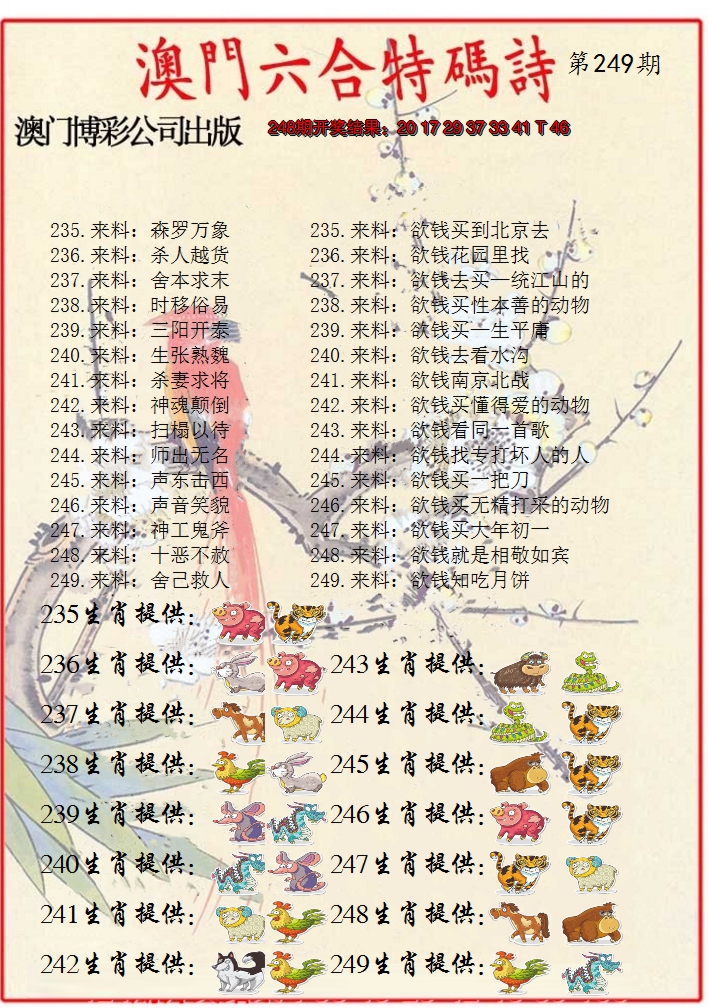 澳門六合特碼詩 第249期
澳门博彩公司出版 248期开奖结果：20 17 29 37 33 41 T 46
235.来料：森罗万象 235.来料：欲钱买到北京去
236.来料：杀人越货 236.来料：欲钱花园里找
237.来料：舍本求末 237.来料：欲钱去买一统江山的
238.来料：时移俗易 238.来料：欲钱买性本善的动物
239.来料：三阳开泰 239.来料：欲钱买一生平庸
240.来料：生张熟魏 240.来料：欲钱去看水沟
241.来料：杀妻求将 241.来料：欲钱南京北战
242.来料：神魂颠倒 242.来料：欲钱买懂得爱的动物
243.来料：扫榻以待 243.来料：欲钱看同一首歌
244.来料：师出无名 244.来料：欲钱找专打坏人的人
245.来料：声东击西 245.来料：欲钱买一把刀
246.来料：声音笑貌 246.来料：欲钱买无精打采的动物
247.来料：神工鬼斧 247.来料：欲钱买大年初一
248.来料：十恶不赦 248.来料：欲钱就是相敬如宾
249.来料：舍己救人 249.来料：欲钱知吃月饼
235生肖提供：
236生肖提供： 243生肖提供：
237生肖提供： 244生肖提供：
238生肖提供： 245生肖提供：
239生肖提供： 246生肖提供：
240生肖提供： 247生肖提供：
241生肖提供： 248生肖提供：
242生肖提供： 249生肖提供：